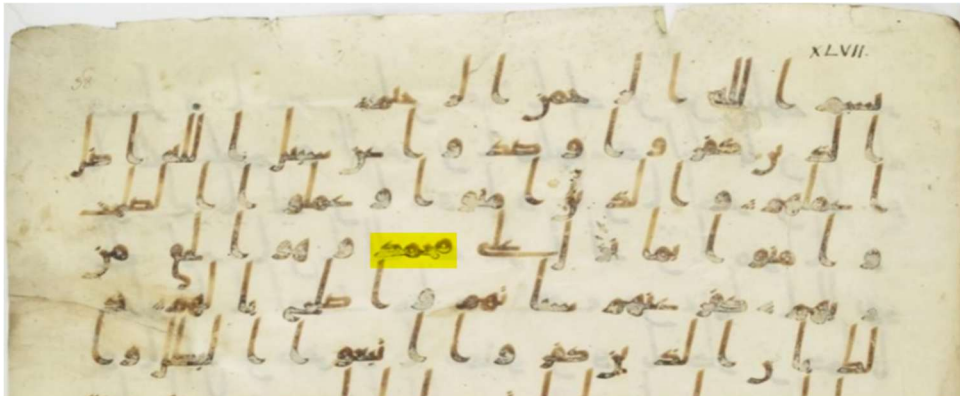 XLVII.
بسم الله الرحمن الرحيم
الذين كفروا وصدوا عن سبيل الله اضل
اعملهم والذين امنوا وعملوا الصلحت
وامنوا بما نزل على محمد وهو الحق من
ربهم كفر عنهم سياتهم واصلح بالهم ذ
لك بان الذين كفروا اتبعوا البطل وا